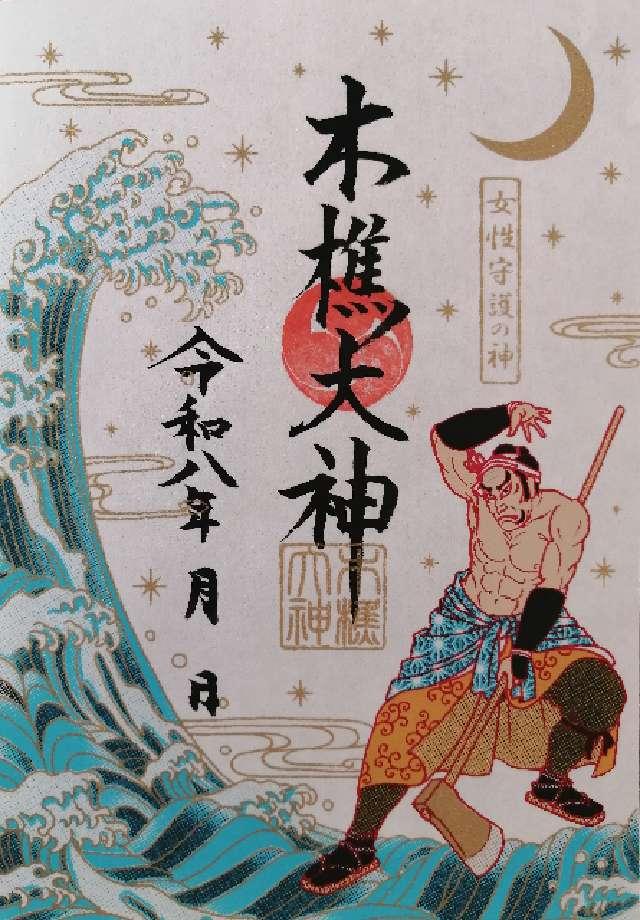 女性守護の神
木樵大神
木樵
大神
令和八年 月 日